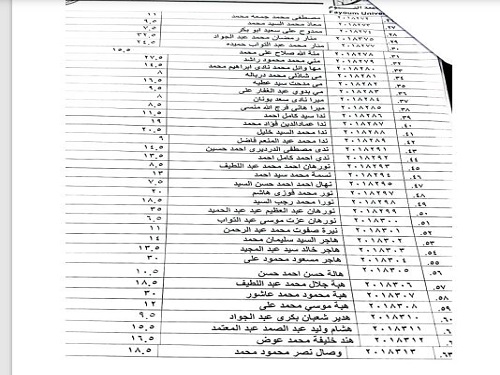 Fayoum Univer
٢٠١٨٢٧٤ مصطفى محمد جمعه محمد ١١
معاذ محمد السيد محمد ٩,٥
ممدوح على سعيد ابو بكر
٢٠١٨٢٧٥ منار رمضان محمد عبد الجواد ٣٢,٥
٢٠١٨٢٧٧ منار محمد عبد التواب حميده ٢٤,٥
٢٠١٨٢٧٨ منة الله صلاح على محمد ١٥,٥
٢٠١٨٢٧٩ منى محمد محمود راشد ٢٧,٥
٢٠١٨٢٨٠ مها وائل محمد نادى ابراهيم محمد ١٤
٣٤. ٢٠١٨٢٨١ مى شاذلى محمد درباله ٨
٣٥. ٢٠١٨٢٨٢ مى مدحت سيد عطيه ١٦,٥
٣٦. ٢٠١٨٢٨٣ مى بدوى عبد الغفار على ٩,٥
٣٧. ٢٠١٨٢٨٤ ميرا نادى سعد يونان ٨
٣٨. ٢٠١٨٢٨٥ ميرا هانى فرج الله منسى ٨,٥
٣٩. ٢٠١٨٢٨٦ ندا سيد كامل احمد ١١,٥
٤٠. ٢٠١٨٢٨٧ ندا عمادالدين فؤاد محمد ١٩
٤١. ٢٠١٨٢٨٨ ندا محمد السيد خليل ٢٠,٥
٤٢. ٢٠١٨٢٨٩ ندا محمد عبد المنعم فاضل ٩
٢٠١٨٢٩١ ندى مصطفى الدرديرى احمد حسين ١٤,٥
٤٤. ٢٠١٨٢٩٢ ندى احمد كامل احمد ١٣,٥
٤٥. ٢٠١٨٢٩٣ نورهان احمد محمد عبد اللطيف ٨,٥
٤٦. ٢٠١٨٢٩٤ نسمة محمد سيد احمد ١٣
٤٧. ٢٠١٨٢٩٦ نهال احمد احمد حسن السيد ٧,٥
٤٨. ٢٠١٨٢٩٧ نور محمد فوزى هاشم ٢٠
٤٩. ٢٠١٨٢٩٨ نورا محمد رجب السيد ١٨,٥
٥٠. ٢٠١٨٢٩٩ نورهان عبد العظيم عبد عبد الحميد ٣٥
٥١. ٢٠١٨٣٠٠ نورهان عزت موسى عبد التواب ٦,٥
٢٠١٨٣٠١ نيرة صفوت محمد عبد الرحمن ١١
٥٣. ٢٠١٨٣٠٢ هاجر السيد سليمان محمد ١٤
٥٤. ٢٠١٨٣٠٣ هاجر خالد سيد عبد المجيد ١٣,٥
٥٥. ٢٠١٨٣٠٤ هاجر مسعود محمود على ٣٠
٥٦. ٢٠١٨٣٠٥ هالة حسن احمد حسن ١٠,٥
٥٧. ٢٠١٨٣٠٦ هبة جلال محمد عبد اللطيف ١٨,٥
٥٨. ٢٠١٨٣٠٧ هبة محمود محمد عاشور ٣٠
٥٩. ٢٠١٨٣٠٨ هبة موسى محمد على ١٢
٢٠١٨٣١٠ هدير شعبان بكرى عبد الجواد ٩,٥
٢٠١٨٣١١ هشام وليد عبد الصمد عبد المعتمد ١٥,٥
٢٠١٨٣١٢ هند خليفة محمد عوض ١٦,٥
٦٣. ٢٠١٨٣١٣ وصال نصر محمود محمد ١٨,٥